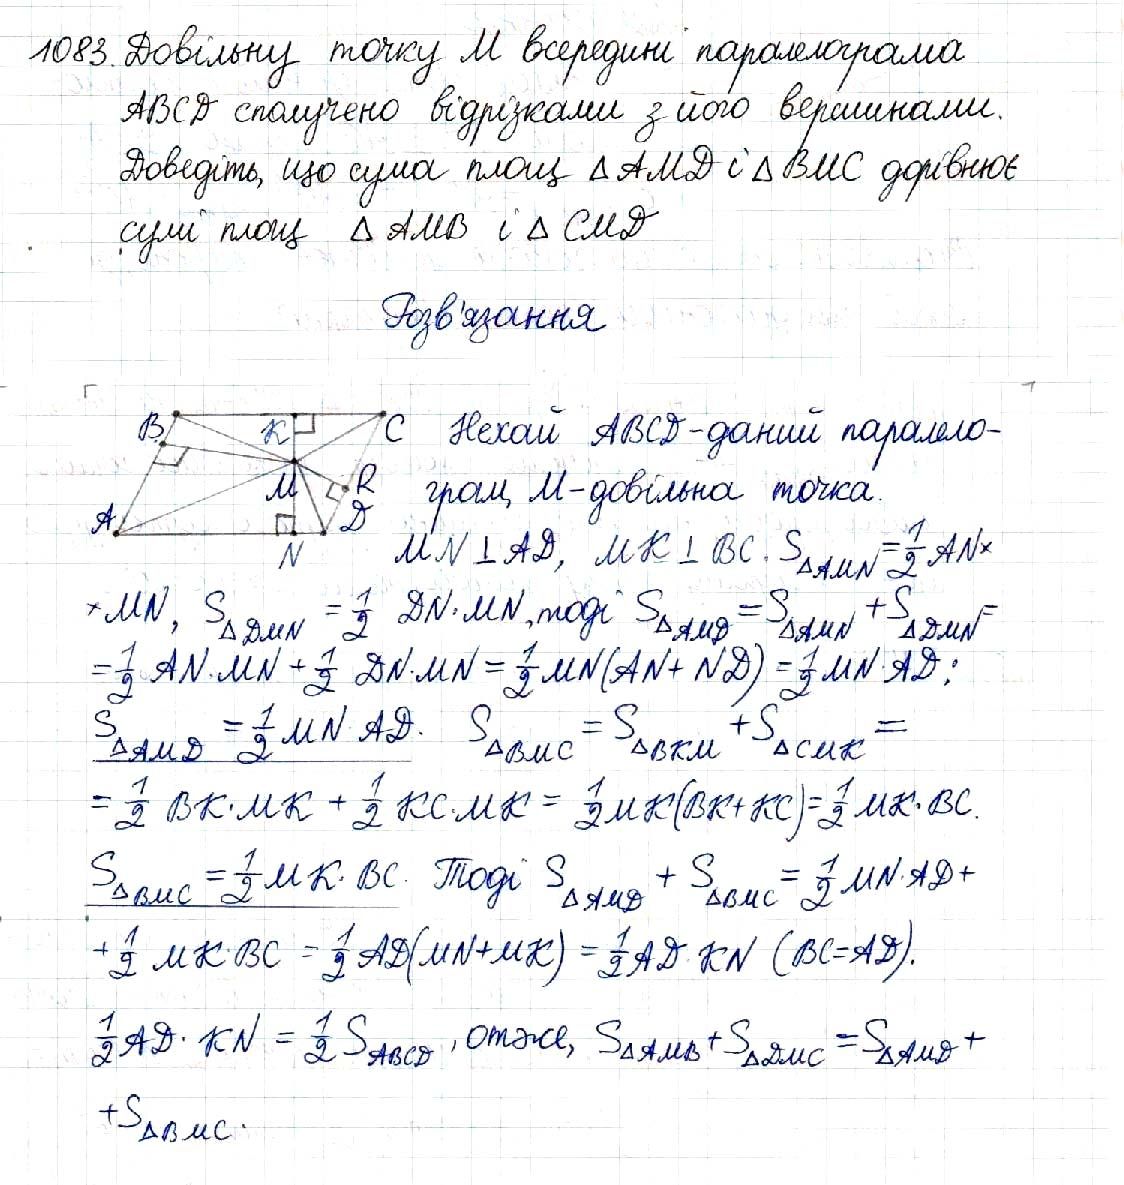 1083. Довільну точку М всередині паралелограма
ABCD сполучено відрізками з його вершинами.
Доведіть, що сума площ △ AMD і △ BMC дорівнює
сумі площ △ AMB і △ CMD
Розв'язання
B K C
M R
A D
N
Нехай ABCD - даний парало-
грам, М - довільна точка.
MN ⊥ AD, MK ⊥ BC. S△AMN = 1/2 AN×
× MN, S△DMN = 1/2 DN·MN, тоді S△AMD = S△AMN + S△DMN =
= 1/2 AN·MN + 1/2 DN·MN = 1/2 MN(AN + ND) = 1/2 MN·AD;
S△AMD = 1/2 MN·AD. S△BMC = S△BKM + S△CMK =
= 1/2 BK·MK + 1/2 KC·MK = 1/2 MK(BK+KC) = 1/2 MK·BC.
S△BMC = 1/2 MK·BC. Тоді S△AMD + S△BMC = 1/2 MN·AD +
+ 1/2 MK·BC = 1/2 AD(MN+MK) = 1/2 AD·KN (BC=AD).
1/2 AD·KN = 1/2 SABCD, отже, S△AMB + S△DMC = S△AMD +
+ S△BMC.